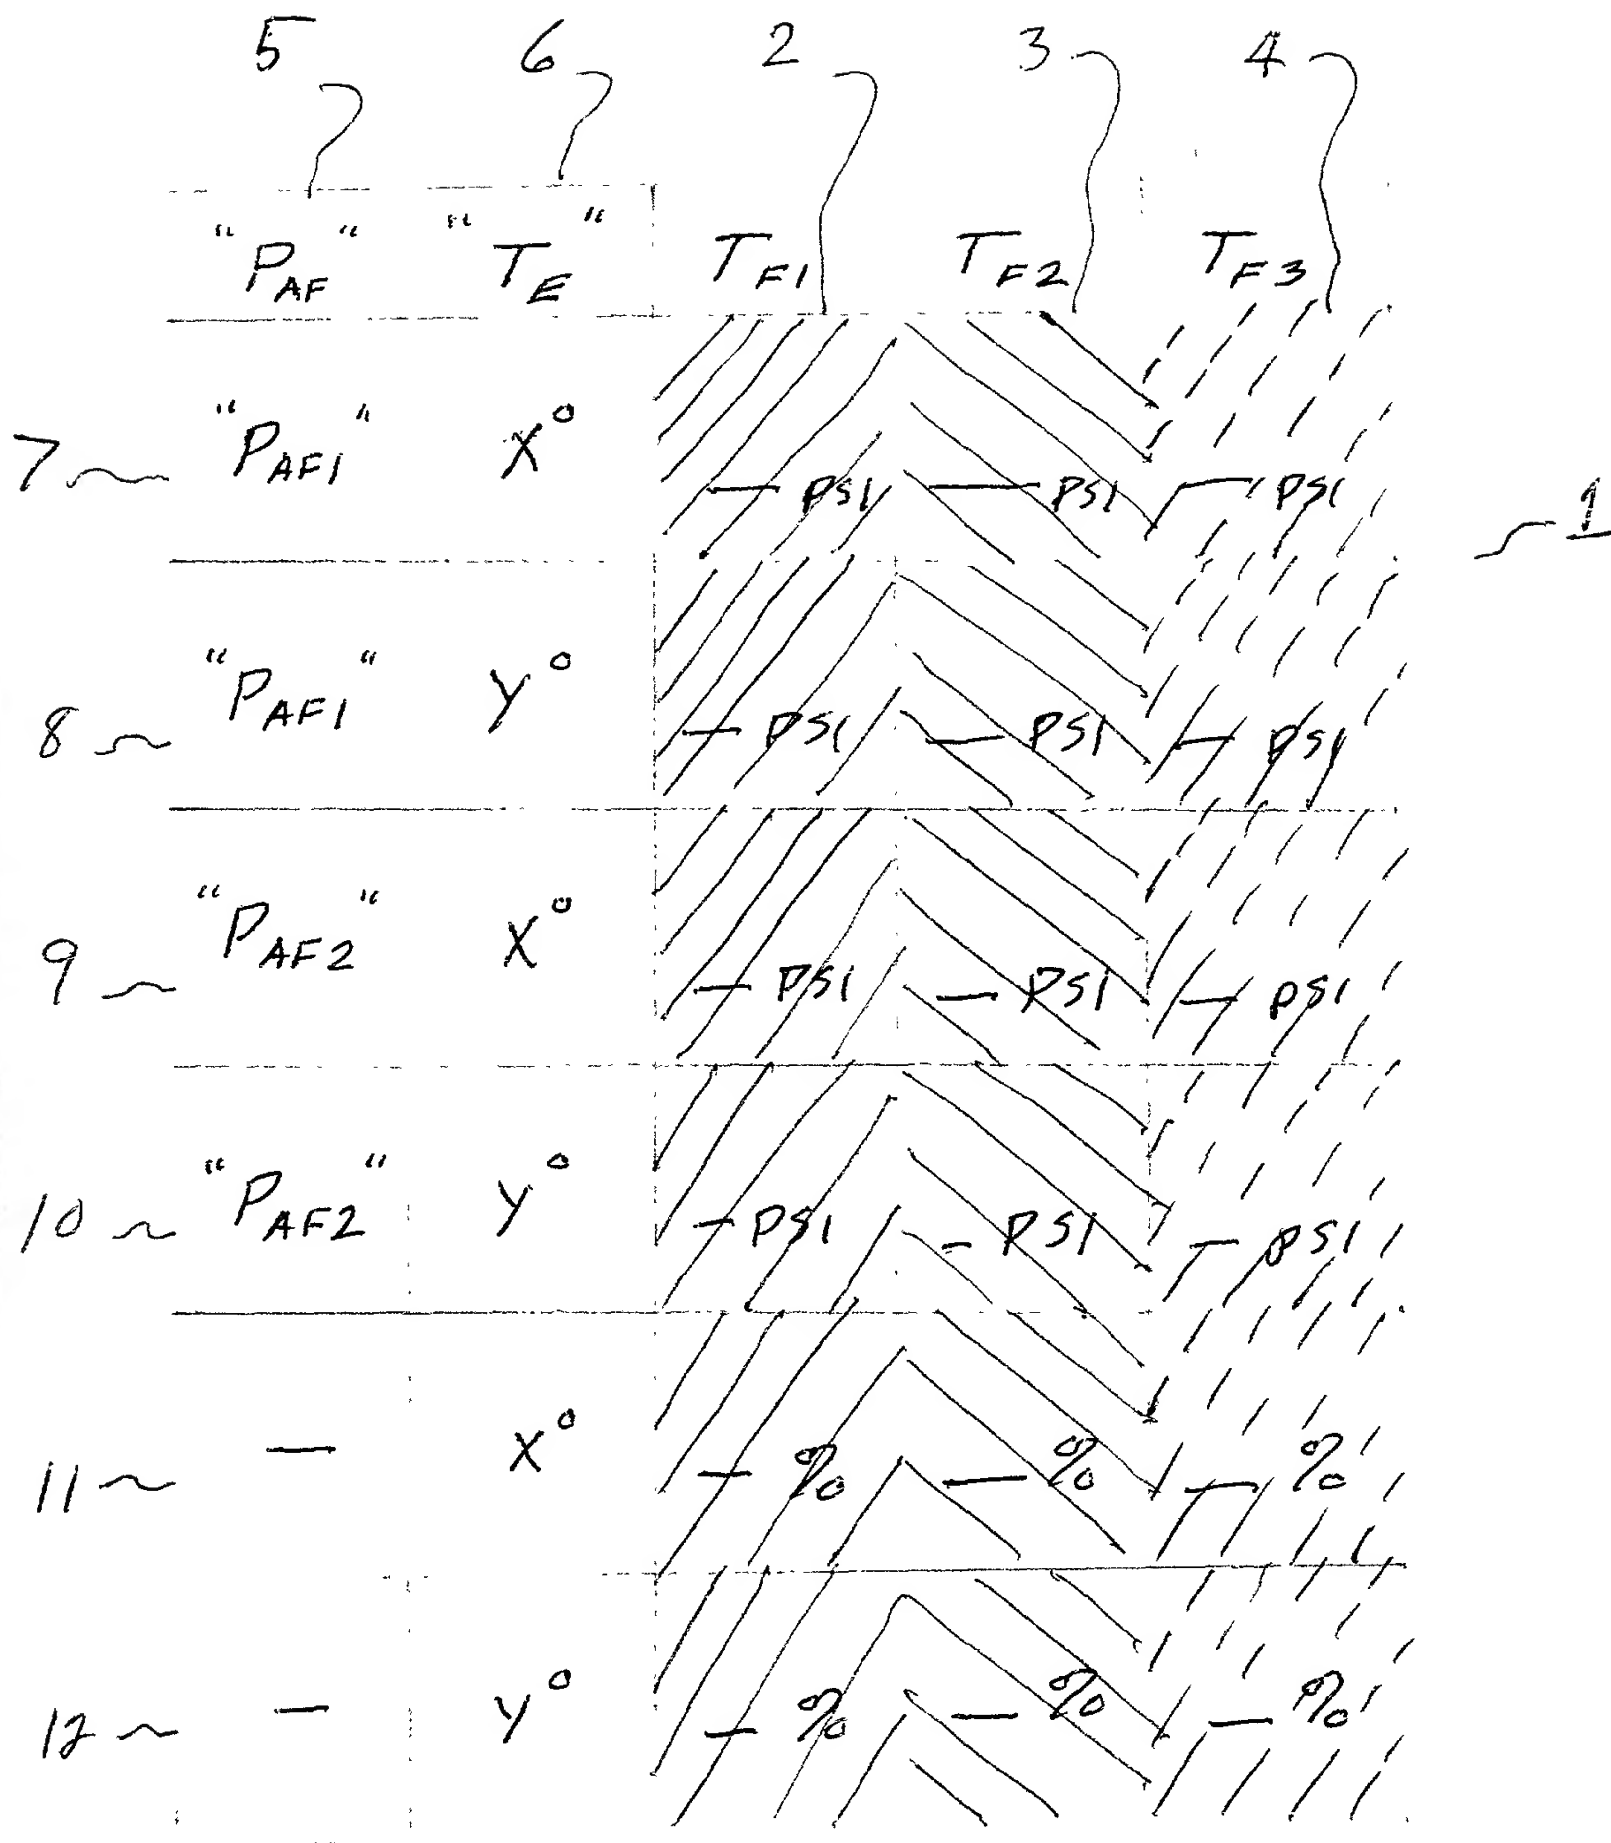 5 6 2 3 4
"PAF" "TE" TF1 TF2 TF3
7 "PAF1" X° — PSI — PSI — PSI
1
8 "PAF1" Y° — PSI — PSI — PSI
9 "PAF2" X° — PSI — PSI — PSI
10 "PAF2" Y° — PSI — PSI — PSI
11 — X° — % — % — %
12 — Y° — % — % — %